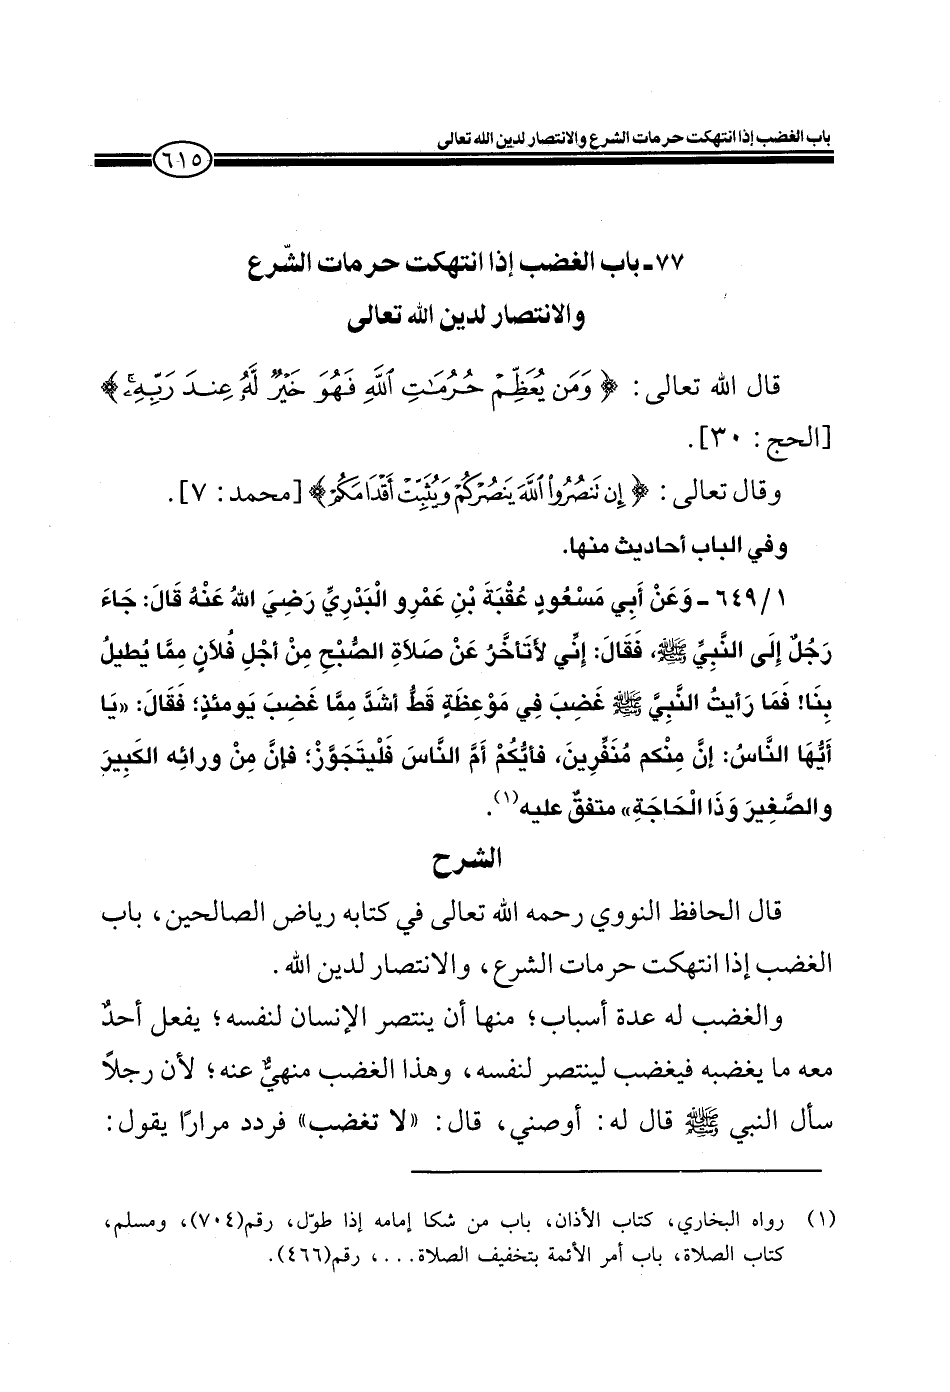 باب الغضب إذا انتهكت حرمات الشرع والانتصار لدين الله تعالى
٦١٥
٧٧ـ باب الغضب إذا انتهكت حرمات الشّرع
والانتصار لدين الله تعالى
قال الله تعالى: ﴿ وَمَن يُعَظِّمْ حُرُمَٰتِ ٱللَّهِ فَهُوَ خَيْرٌ لَّهُۥ عِندَ رَبِّهِۦۗ ﴾
[الحج: ٣٠].
وقال تعالى: ﴿ إِن تَنصُرُوا۟ ٱللَّهَ يَنصُرْكُمْ وَيُثَبِّتْ أَقْدَامَكُمْ ﴾ [محمد: ٧].
وفي الباب أحاديث منها.
٦٤٩/١ ـ وَعَنْ أَبِي مَسْعُودٍ عُقْبَةَ بْنِ عَمْرِو الْبَدْرِيِّ رَضِيَ اللهُ عَنْهُ قَالَ: جَاءَ
رَجُلٌ إِلَى النَّبِيِّ ﷺ، فَقَالَ: إِنِّي لأَتَأخَّرُ عَنْ صَلاَةِ الصُّبْحِ مِنْ أَجْلِ فُلاَنٍ مِمَّا يُطِيلُ
بِنَا! فَمَا رَأيتُ النَّبِيَّ ﷺ غَضِبَ فِي مَوْعِظَةٍ قَطُّ أشَدَّ مِمَّا غَضِبَ يَومئذٍ؛ فَقَالَ: «يَا
أَيُّهَا النَّاسُ: إنَّ مِنْكم مُنَفِّرِينَ، فَأيُّكُمْ أمَّ النَّاسَ فَلْيتَجَوَّزْ؛ فإنَّ مِنْ ورائِه الكَبِيرَ
والصَّغِيرَ وَذَا الْحَاجَةِ» متفقٌ عليه(١).
الشرح
قال الحافظ النووي رحمه الله تعالى في كتابه رياض الصالحين، باب
الغضب إذا انتهكت حرمات الشرع، والانتصار لدين الله.
والغضب له عدة أسباب؛ منها أن ينتصر الإنسان لنفسه؛ يفعل أحدٌ
معه ما يغضبه فيغضب لينتصر لنفسه، وهذا الغضب منهيٌّ عنه؛ لأن رجلاً
سأل النبي ﷺ قال له: أوصني، قال: «لا تغضب» فردد مرارًا يقول:
(١) رواه البخاري، كتاب الأذان، باب من شكا إمامه إذا طوّل، رقم(٧٠٤)، ومسلم،
كتاب الصلاة، باب أمر الأئمة بتخفيف الصلاة....، رقم(٤٦٦).